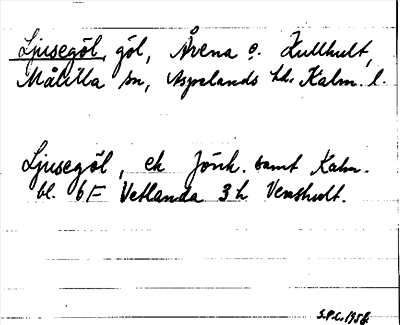 Ljusegöl, göl, Åvena o. Kullhult,
Målilla sn, Aspelands hd. Kalm. l.
Ljusegöl, ek Jönk. samt Kalm.
bl. 6F Vetlanda 3 h Venshult.
S.P.C. 1958.